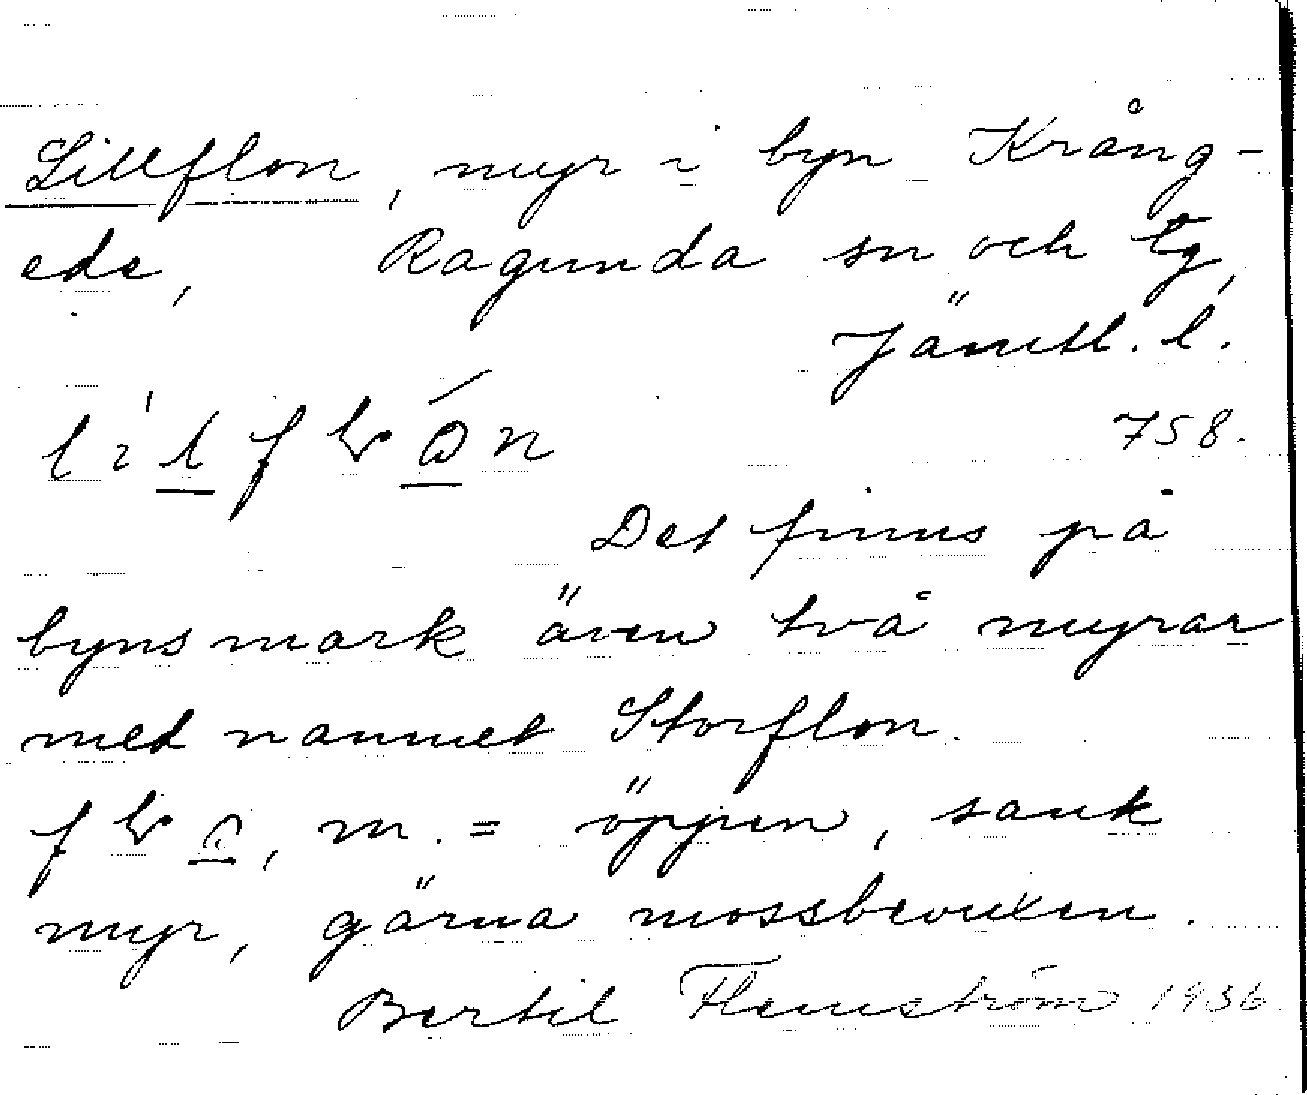 Lillflon, myr i byn Krång-
ede, Ragunda sn och tg,
Jämtl. l.
758.
Det finns på
byns mark även två myrar
med namnet Storflon.
m. = öppen, sank
myr, gärna mossbevuxen.
Bertil Flemström 1936